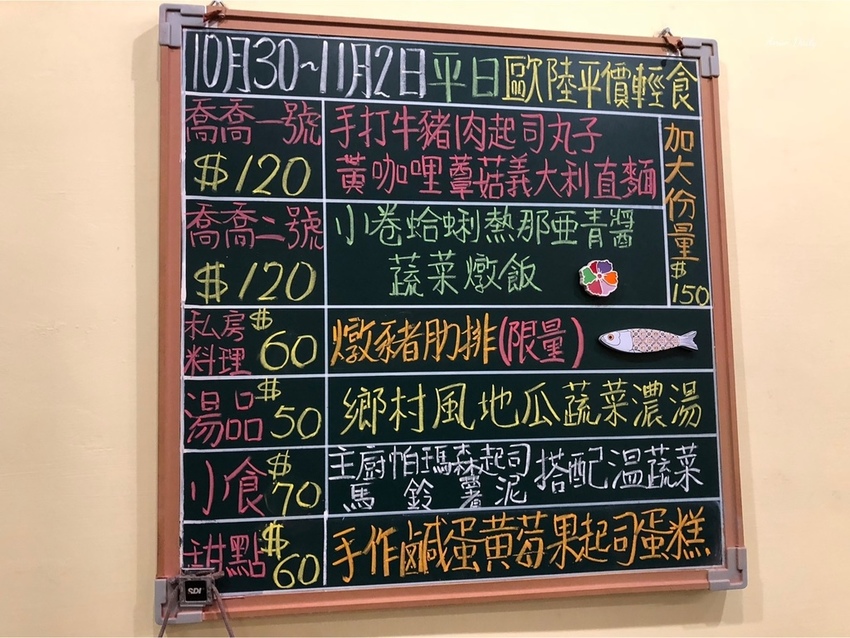 10月30~11月2日平日歐陸平價輕食
喬喬一號
$120
手打牛豬肉起司丸子
黃咖哩蕈菇義大利直麵
加大份量$150
喬喬二號
$120
小卷蛤蜊熱那亜青醬
蔬菜燉飯
私房料理 $60
燉豬肋排(限量)
湯品 $50
鄉村風地瓜蔬菜濃湯
小食 $70
主廚帕瑪森起司馬鈴薯泥 搭配溫蔬菜
甜點 $60
手作鹹蛋黃莓果起司蛋糕